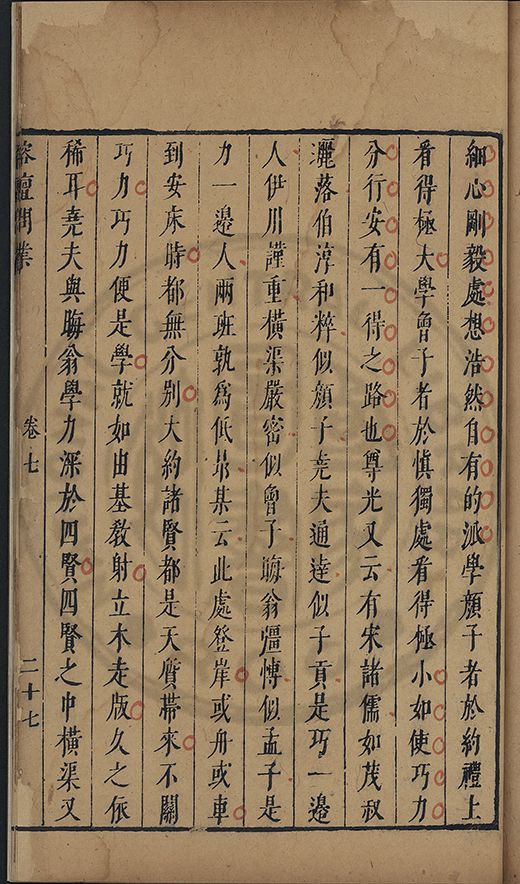 細心剛毅處想浩然自有的派學顏子者於約禮上
看得極大學曾子者於慎獨處看得極小如使巧力
分行安有一得之路也尊光又云有宋諸儒如茂叔
灑落伯淳和粹似顏子堯夫通達似子貢是巧一邊
人伊川謹重橫渠嚴密似曾子晦翁彊愽似孟子是
力一邊人兩班孰為低昻某云此處登岸或舟或車
到安床時都無分別大約諸賢都是天質帶來不關
巧力巧力便是學就如由基敎射立木走版久之依
稀耳堯夫與晦翁學力深於四賢四賢之中橫渠又
榕壇問業
卷七
二十七